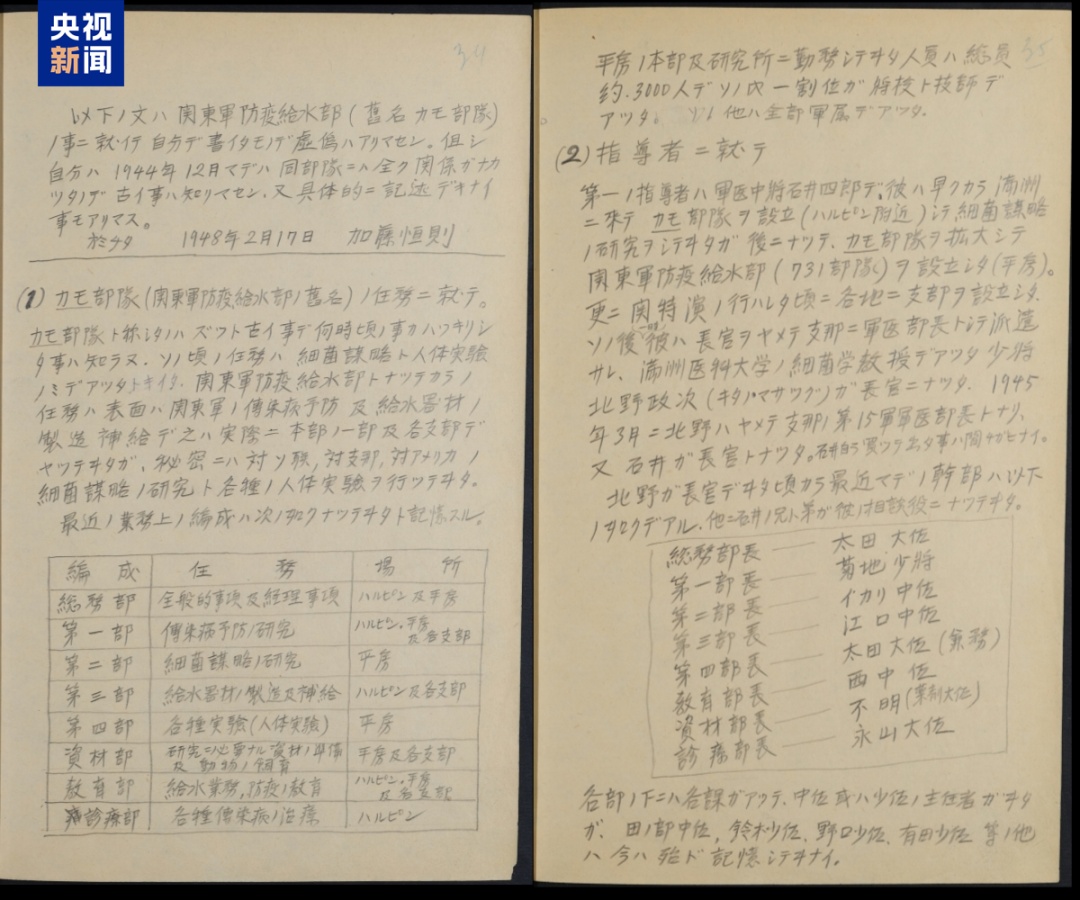 央视
新闻
34
以下ノ文ハ 関東軍防疫給水部(舊名 カモ部隊)
ノ事ニ就イテ 自分デ書イタモノデ虚偽ハアリマセン。但シ
自分ハ 1944年12月マデハ 同部隊ニハ全ク関係ガナカ
ツタノデ 古イ事ハ知リマセン.又具体的ニ記述デキナイ
事モアリマス。
於チタ 1948年2月17日 加藤恒則
(1) カモ部隊(関東軍防疫給水部ノ舊名)ノ任務ニ就テ。
カモ部隊ト称シタノハ ズツト古イ事デ何時頃ノ事カハツキリシ
タ事ハ知ラヌ. ソノ頃ノ任務ハ 細菌謀略ト人体実験
ノミデアツタトキイタ. 関東軍防疫給水部トナツテカラノ
任務ハ 表面ハ関東軍ノ傳染病予防 及給水器材ノ
製造補給デ之ハ実際ニ本部ノ一部及各支部デ
ヤツテヰタガ、秘密ニハ対ソ聯,対支那,対アメリカノ
細菌謀略ノ研究ト各種ノ人体実験ヲ行ツテヰタ。
最近ノ業務上ノ編成ハ次ノ如クナツテヰタト記憶スル。
編成 任務 場所
総務部 全般的事項及経理事項 ハルピン及平房
第一部 傳染病予防ノ研究 ハルピン・平房
及各支部
第二部 細菌謀略ノ研究 平房
第三部 給水器材ノ製造及補給 ハルピン及各支部
第四部 各種実験(人体実験) 平房
資材部 研究ニ必要ナル資材ノ準備
及動物ノ飼育 平房及各支部
教育部 給水業務,防疫ノ教育 ハルピン・平房
及各支部
診療部 各種傳染病ノ治療 ハルピン
35
平房ノ本部及研究所ニ勤務シテヰタ人員ハ総員
約.3000人デソノ内一割位ガ将校ト技師デ
アツタ。 ソノ他ハ全部軍属デアツタ.
(2) 指導者ニ就テ
第一ノ指導者ハ軍医中将石井四郎デ、彼ハ早クカラ満洲
ニ来テ カモ部隊ヲ設立(ハルピン附近)シテ細菌謀略
ノ研究ヲシテヰタガ 後ニナツテ、カモ部隊ヲ拡大シテ
関東軍防疫給水部(731部隊)ヲ設立シタ(平房)。
更ニ関特演ノ行ハレタ頃ニ各地ニ支部ヲ設立シタ.
ソノ後彼ハ長官ヲヤメテ支那ニ軍医部長トシテ派遣
サレ、満洲医科大学ノ細菌学教授デアツタ少将
北野政次(キタノマサツグ)ガ長官ニナツタ. 1945
年3月ニ北野ハヤメテ支那ノ第15軍軍医部長トナリ、
又石井ガ長官トナツタ。
北野ガ長官デヰタ頃カラ最近マデノ幹部ハ以下
ノ如クデアル.他ニ石井ノ兄ト弟ガ彼ノ相談役ニナツテヰタ。
総務部長 太田大佐
第一部長 菊地少将
第二部長 イカリ中佐
第三部長 江口中佐
第四部長 太田大佐(兼務)
教育部長 西中佐
資材部長 不明(薬剤大佐)
診療部長 永山大佐
各部ノ下ニハ各課ガアツテ、中佐或ハ少佐ノ主任者ガヰタ
ガ、田ノ部中佐,鈴木少佐、野口少佐、有田少佐 等ノ他
ハ今ハ殆ド記憶シテヰナイ.